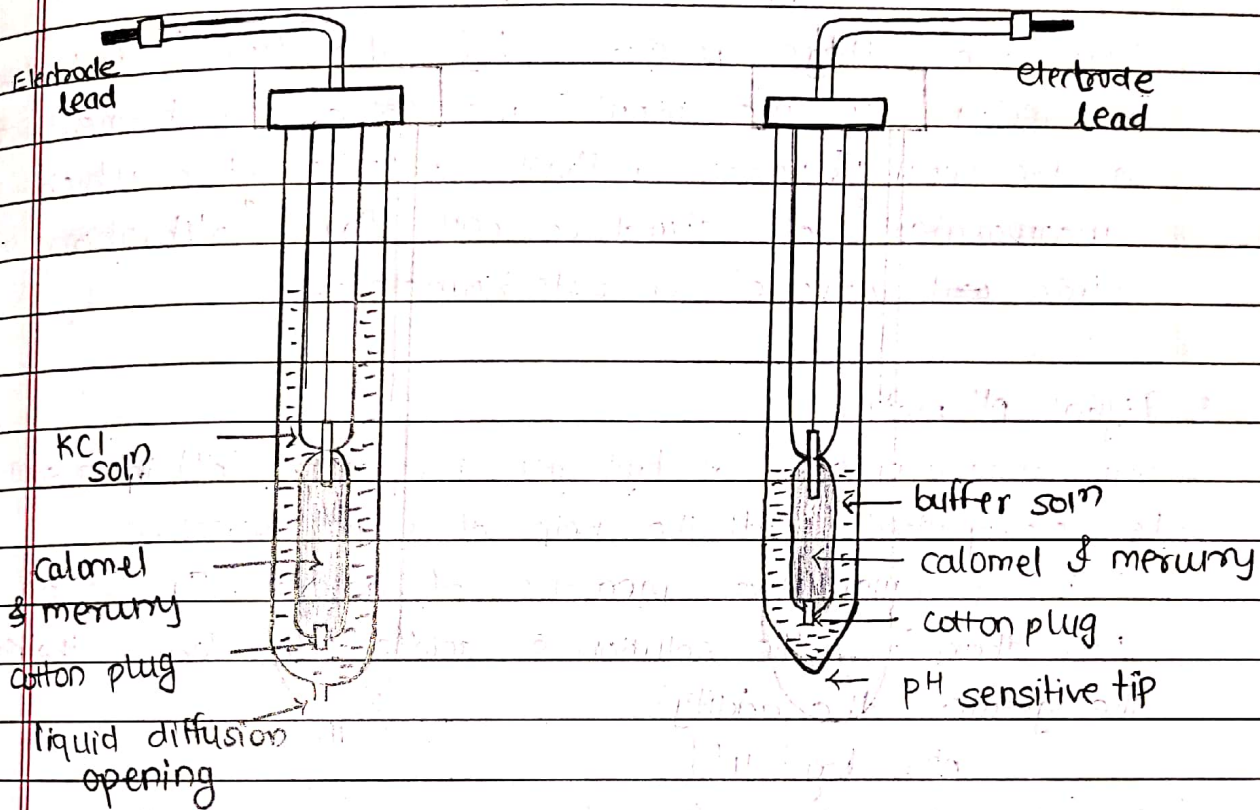 Electrode
lead
KCl
solⁿ
calomel
& mercury
cotton plug
liquid diffusion
opening
electrode
lead
buffer solⁿ
calomel & mercury
cotton plug.
pH sensitive tip